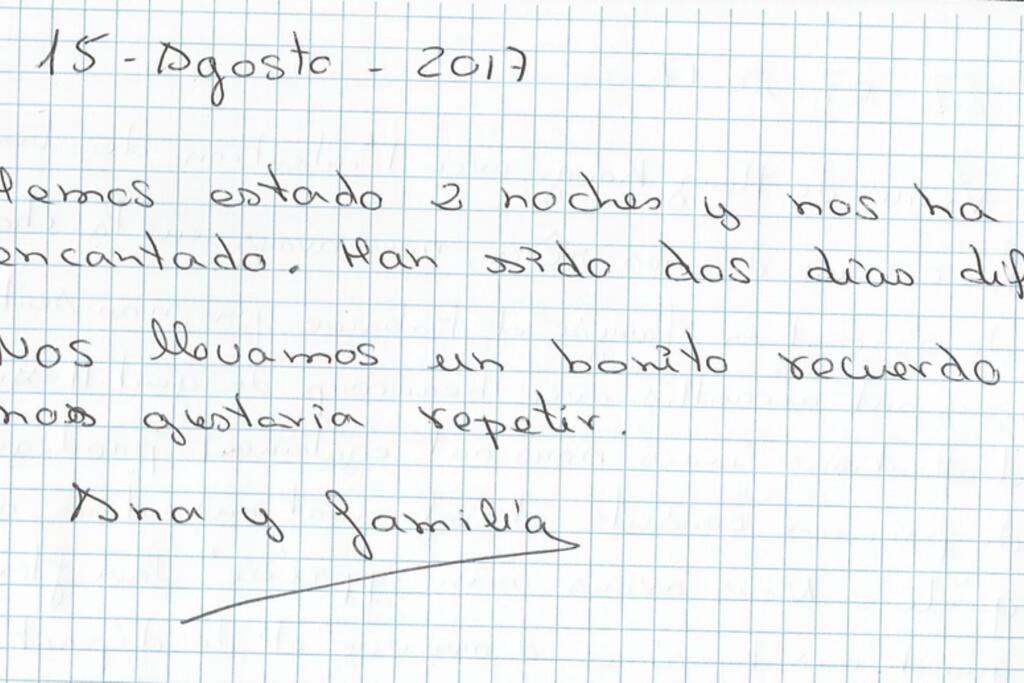 15 - Agosto - 2017
Hemos estado 2 noches y nos ha
encantado. Han sido dos dias dif
Nos llevamos un bonito recuerdo
nos gustaria repetir.
Ana y familia